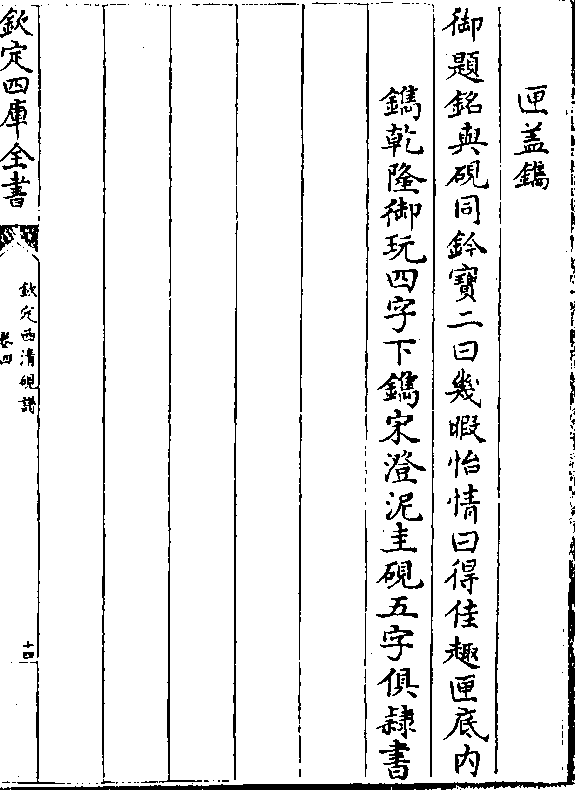 匣盖鐫
御題銘與硯同鈐寶二曰幾暇怡情曰得佳趣匣底内
鐫乾隆御玩四字下鐫宋澄泥圭硯五字俱隸書
欽定四庫全書
欽定西清硯譜
卷四
十四